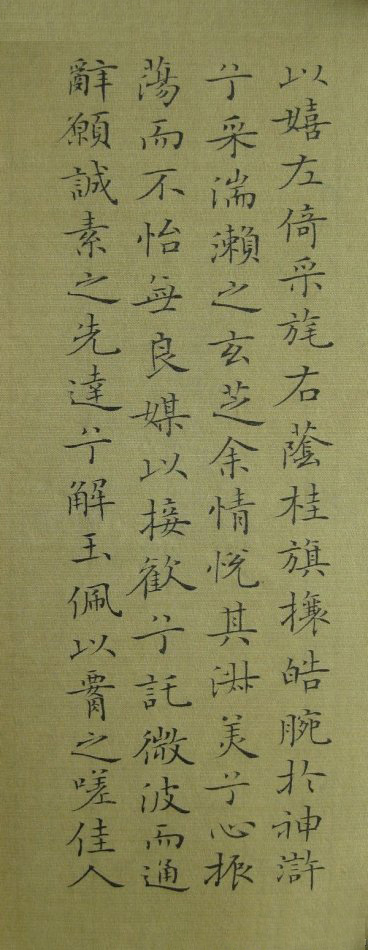 以嬉左倚采旄右蔭桂旗攘皓腕於神滸
兮采湍瀨之玄芝余情悅其淋美兮心振
蕩而不怡無良媒以接歡兮託微波而通
辭願誠素之先達兮解玉佩以要之嗟佳人